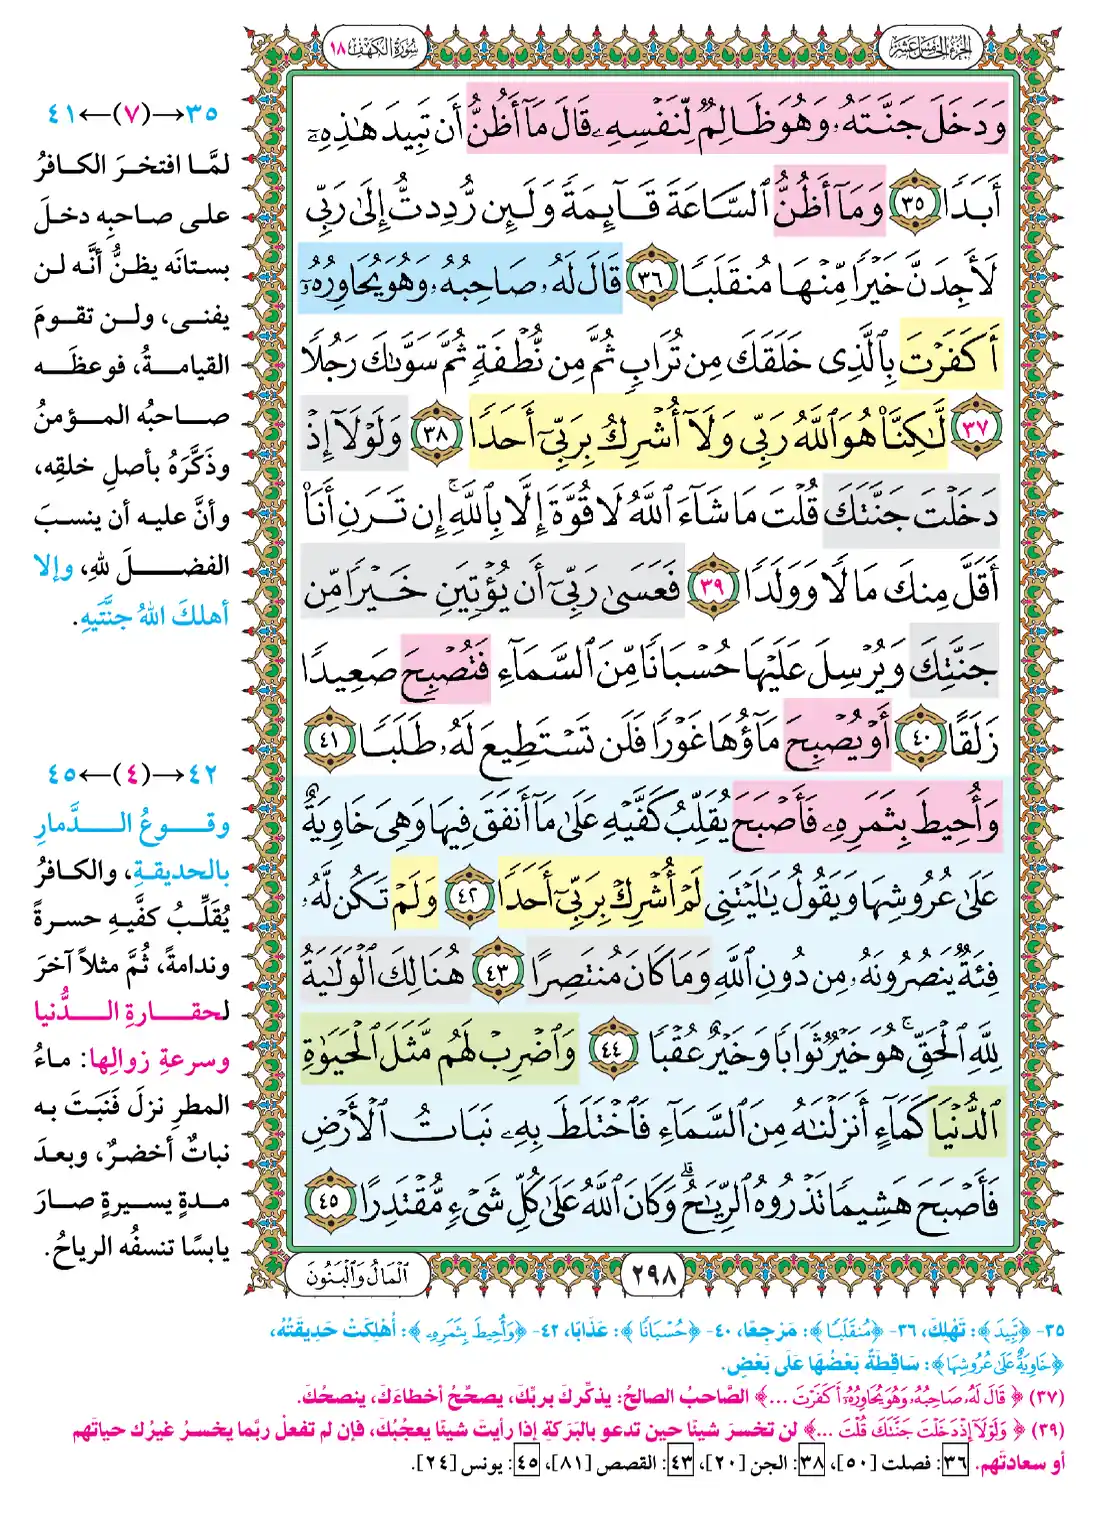 الجزء الخامس عشر
سورة الكهف ١٨
وَدَخَلَ جَنَّتَهُۥ وَهُوَ ظَالِمٌ لِّنَفْسِهِۦ قَالَ مَآ أَظُنُّ أَن تَبِيدَ هَٰذِهِۦٓ
أَبَدًا ٣٥ وَمَآ أَظُنُّ ٱلسَّاعَةَ قَآئِمَةً وَلَئِن رُّدِدتُّ إِلَىٰ رَبِّى
لَأَجِدَنَّ خَيْرًا مِّنْهَا مُنقَلَبًا ٣٦ قَالَ لَهُۥ صَاحِبُهُۥ وَهُوَ يُحَاوِرُهُۥٓ
أَكَفَرْتَ بِٱلَّذِى خَلَقَكَ مِن تُرَابٍ ثُمَّ مِن نُّطْفَةٍ ثُمَّ سَوَّىٰكَ رَجُلًا
٣٧ لَّٰكِنَّا۠ هُوَ ٱللَّهُ رَبِّى وَلَآ أُشْرِكُ بِرَبِّىٓ أَحَدًا ٣٨ وَلَوْلَآ إِذْ
دَخَلْتَ جَنَّتَكَ قُلْتَ مَا شَآءَ ٱللَّهُ لَا قُوَّةَ إِلَّا بِٱللَّهِ ۚ إِن تَرَنِ أَنَا۠
أَقَلَّ مِنكَ مَالًا وَوَلَدًا ٣٩ فَعَسَىٰ رَبِّىٓ أَن يُؤْتِيَنِ خَيْرًا مِّن
جَنَّتِكَ وَيُرْسِلَ عَلَيْهَا حُسْبَانًا مِّنَ ٱلسَّمَآءِ فَتُصْبِحَ صَعِيدًا
زَلَقًا ٤٠ أَوْ يُصْبِحَ مَآؤُهَا غَوْرًا فَلَن تَسْتَطِيعَ لَهُۥ طَلَبًا ٤١
وَأُحِيطَ بِثَمَرِهِۦ فَأَصْبَحَ يُقَلِّبُ كَفَّيْهِ عَلَىٰ مَآ أَنفَقَ فِيهَا وَهِىَ خَاوِيَةٌ
عَلَىٰ عُرُوشِهَا وَيَقُولُ يَٰلَيْتَنِى لَمْ أُشْرِكْ بِرَبِّىٓ أَحَدًا ٤٢ وَلَمْ تَكُن لَّهُۥ
فِئَةٌ يَنصُرُونَهُۥ مِن دُونِ ٱللَّهِ وَمَا كَانَ مُنتَصِرًا ٤٣ هُنَالِكَ ٱلْوَلَٰيَةُ
لِلَّهِ ٱلْحَقِّ ۚ هُوَ خَيْرٌ ثَوَابًا وَخَيْرٌ عُقْبًا ٤٤ وَٱضْرِبْ لَهُم مَّثَلَ ٱلْحَيَوٰةِ
ٱلدُّنْيَا كَمَآءٍ أَنزَلْنَٰهُ مِنَ ٱلسَّمَآءِ فَٱخْتَلَطَ بِهِۦ نَبَاتُ ٱلْأَرْضِ
فَأَصْبَحَ هَشِيمًا تَذْرُوهُ ٱلرِّيَٰحُ ۗ وَكَانَ ٱللَّهُ عَلَىٰ كُلِّ شَىْءٍ مُّقْتَدِرًا ٤٥
٢٩٨
ٱلْمَالُ وَٱلْبَنُونَ
٣٥→(٧)←٤١
لمَّا افتخرَ الكافرُ
على صاحبِه دخلَ
بستانَه يظنُّ أنَّه لن
يفنى، ولن تقومَ
القيامةُ، فوعظَه
صاحبُه المؤمنُ
وذَكَّرَهُ بأصلِ خلقِه،
وأنَّ عليه أن ينسبَ
الفضلَ للهِ، وإلا
أهلكَ اللهُ جنَّتَيهِ.
٤٢→(٤)←٤٥
وقوعُ الدَّمارِ
بالحديقةِ، والكافرُ
يُقَلِّبُ كفَّيهِ حسرةً
وندامةً، ثُمَّ مثلاً آخرَ
لحقارةِ الدُّنيا
وسرعةِ زوالِها: ماءُ
المطرِ نزلَ فَنَبَتَ به
نباتٌ أخضرُ، وبعدَ
مدةٍ يسيرةٍ صارَ
يابسًا تنسفُه الرياحُ.
٣٥- ﴿تَبِيدَ﴾: تَهْلِكَ، ٣٦- ﴿مُنقَلَبًا﴾: مَرْجِعًا، ٤٠- ﴿حُسْبَانًا﴾: عَذَابًا، ٤٢- ﴿وَأُحِيطَ بِثَمَرِهِۦ﴾: أُهْلِكَتْ حَدِيقَتُهُ،
﴿خَاوِيَةٌ عَلَىٰ عُرُوشِهَا﴾: سَاقِطَةٌ بَعْضُهَا عَلَى بَعْضٍ.
(٣٧) ﴿قَالَ لَهُۥ صَاحِبُهُۥ وَهُوَ يُحَاوِرُهُۥٓ أَكَفَرْتَ ...﴾ الصَّاحبُ الصالحُ: يذكِّركَ بربِّكَ، يصحِّحُ أخطاءَكَ، ينصحُكَ.
(٣٩) ﴿وَلَوْلَآ إِذْ دَخَلْتَ جَنَّتَكَ قُلْتَ ...﴾ لن تخسرَ شيئًا حين تدعو بالبَرَكةِ إذا رأيتَ شيئًا يعجبُكَ، فإن لم تفعلْ ربَّما يخسرُ غيرُك حياتَهم
أو سعادتَهم. ٣٦: فصلت [٥٠]، ٣٨: الجن [٢٠]، ٤٣: القصص [٨١]، ٤٥: يونس [٢٤].